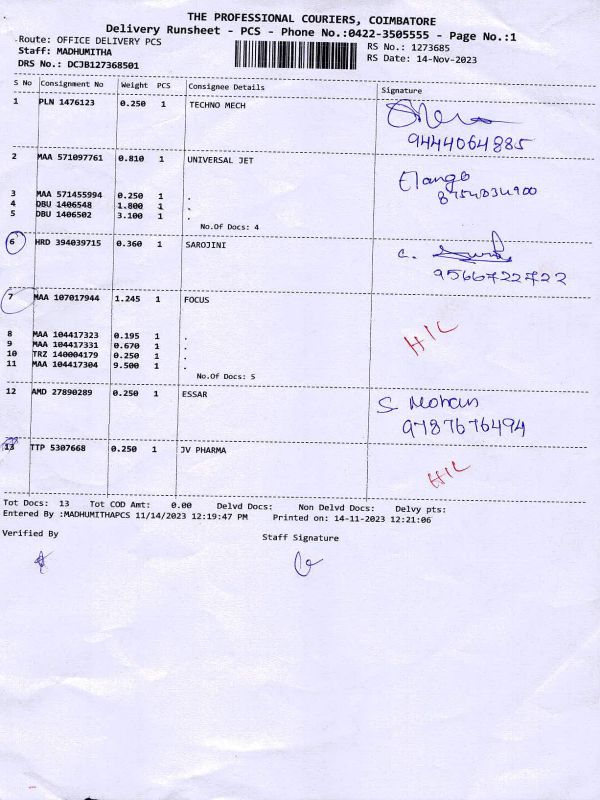 THE PROFESSIONAL COURIERS, COIMBATORE
Delivery Runsheet - PCS - Phone No.:0422-3505555 - Page No.:1
Route: OFFICE DELIVERY PCS RS No.: 1273685
Staff: MADHUMITHA RS Date: 14-Nov-2023
DRS No.: DCJB127368501
S No Consignment No Weight PCS Consignee Details Signature
1 PLN 1476123 0.250 1 TECHNO MECH
9444064885
2 MAA 571097761 0.810 1 UNIVERSAL JET Elango
3 MAA 571455994 0.250 1 .
4 DBU 1406548 1.800 1 .
5 DBU 1406502 3.100 1 .
No.Of Docs: 4
6 HRD 394039715 0.360 1 SAROJINI C.
9566722722
7 MAA 107017944 1.245 1 FOCUS
HIL
8 MAA 104417323 0.195 1 .
9 MAA 104417331 0.670 1 .
10 TRZ 140004179 0.250 1 .
11 MAA 104417304 9.500 1 .
No.Of Docs: 5
12 AMD 27890289 0.250 1 ESSAR S. Mohan
9787676494
13 TTP 5307668 0.250 1 JV PHARMA
HIL
Tot Docs: 13 Tot COD Amt: 0.00 Delvd Docs: Non Delvd Docs: Delvy pts:
Entered By :MADHUMITHAPCS 11/14/2023 12:19:47 PM Printed on: 14-11-2023 12:21:06
Verified By Staff Signature